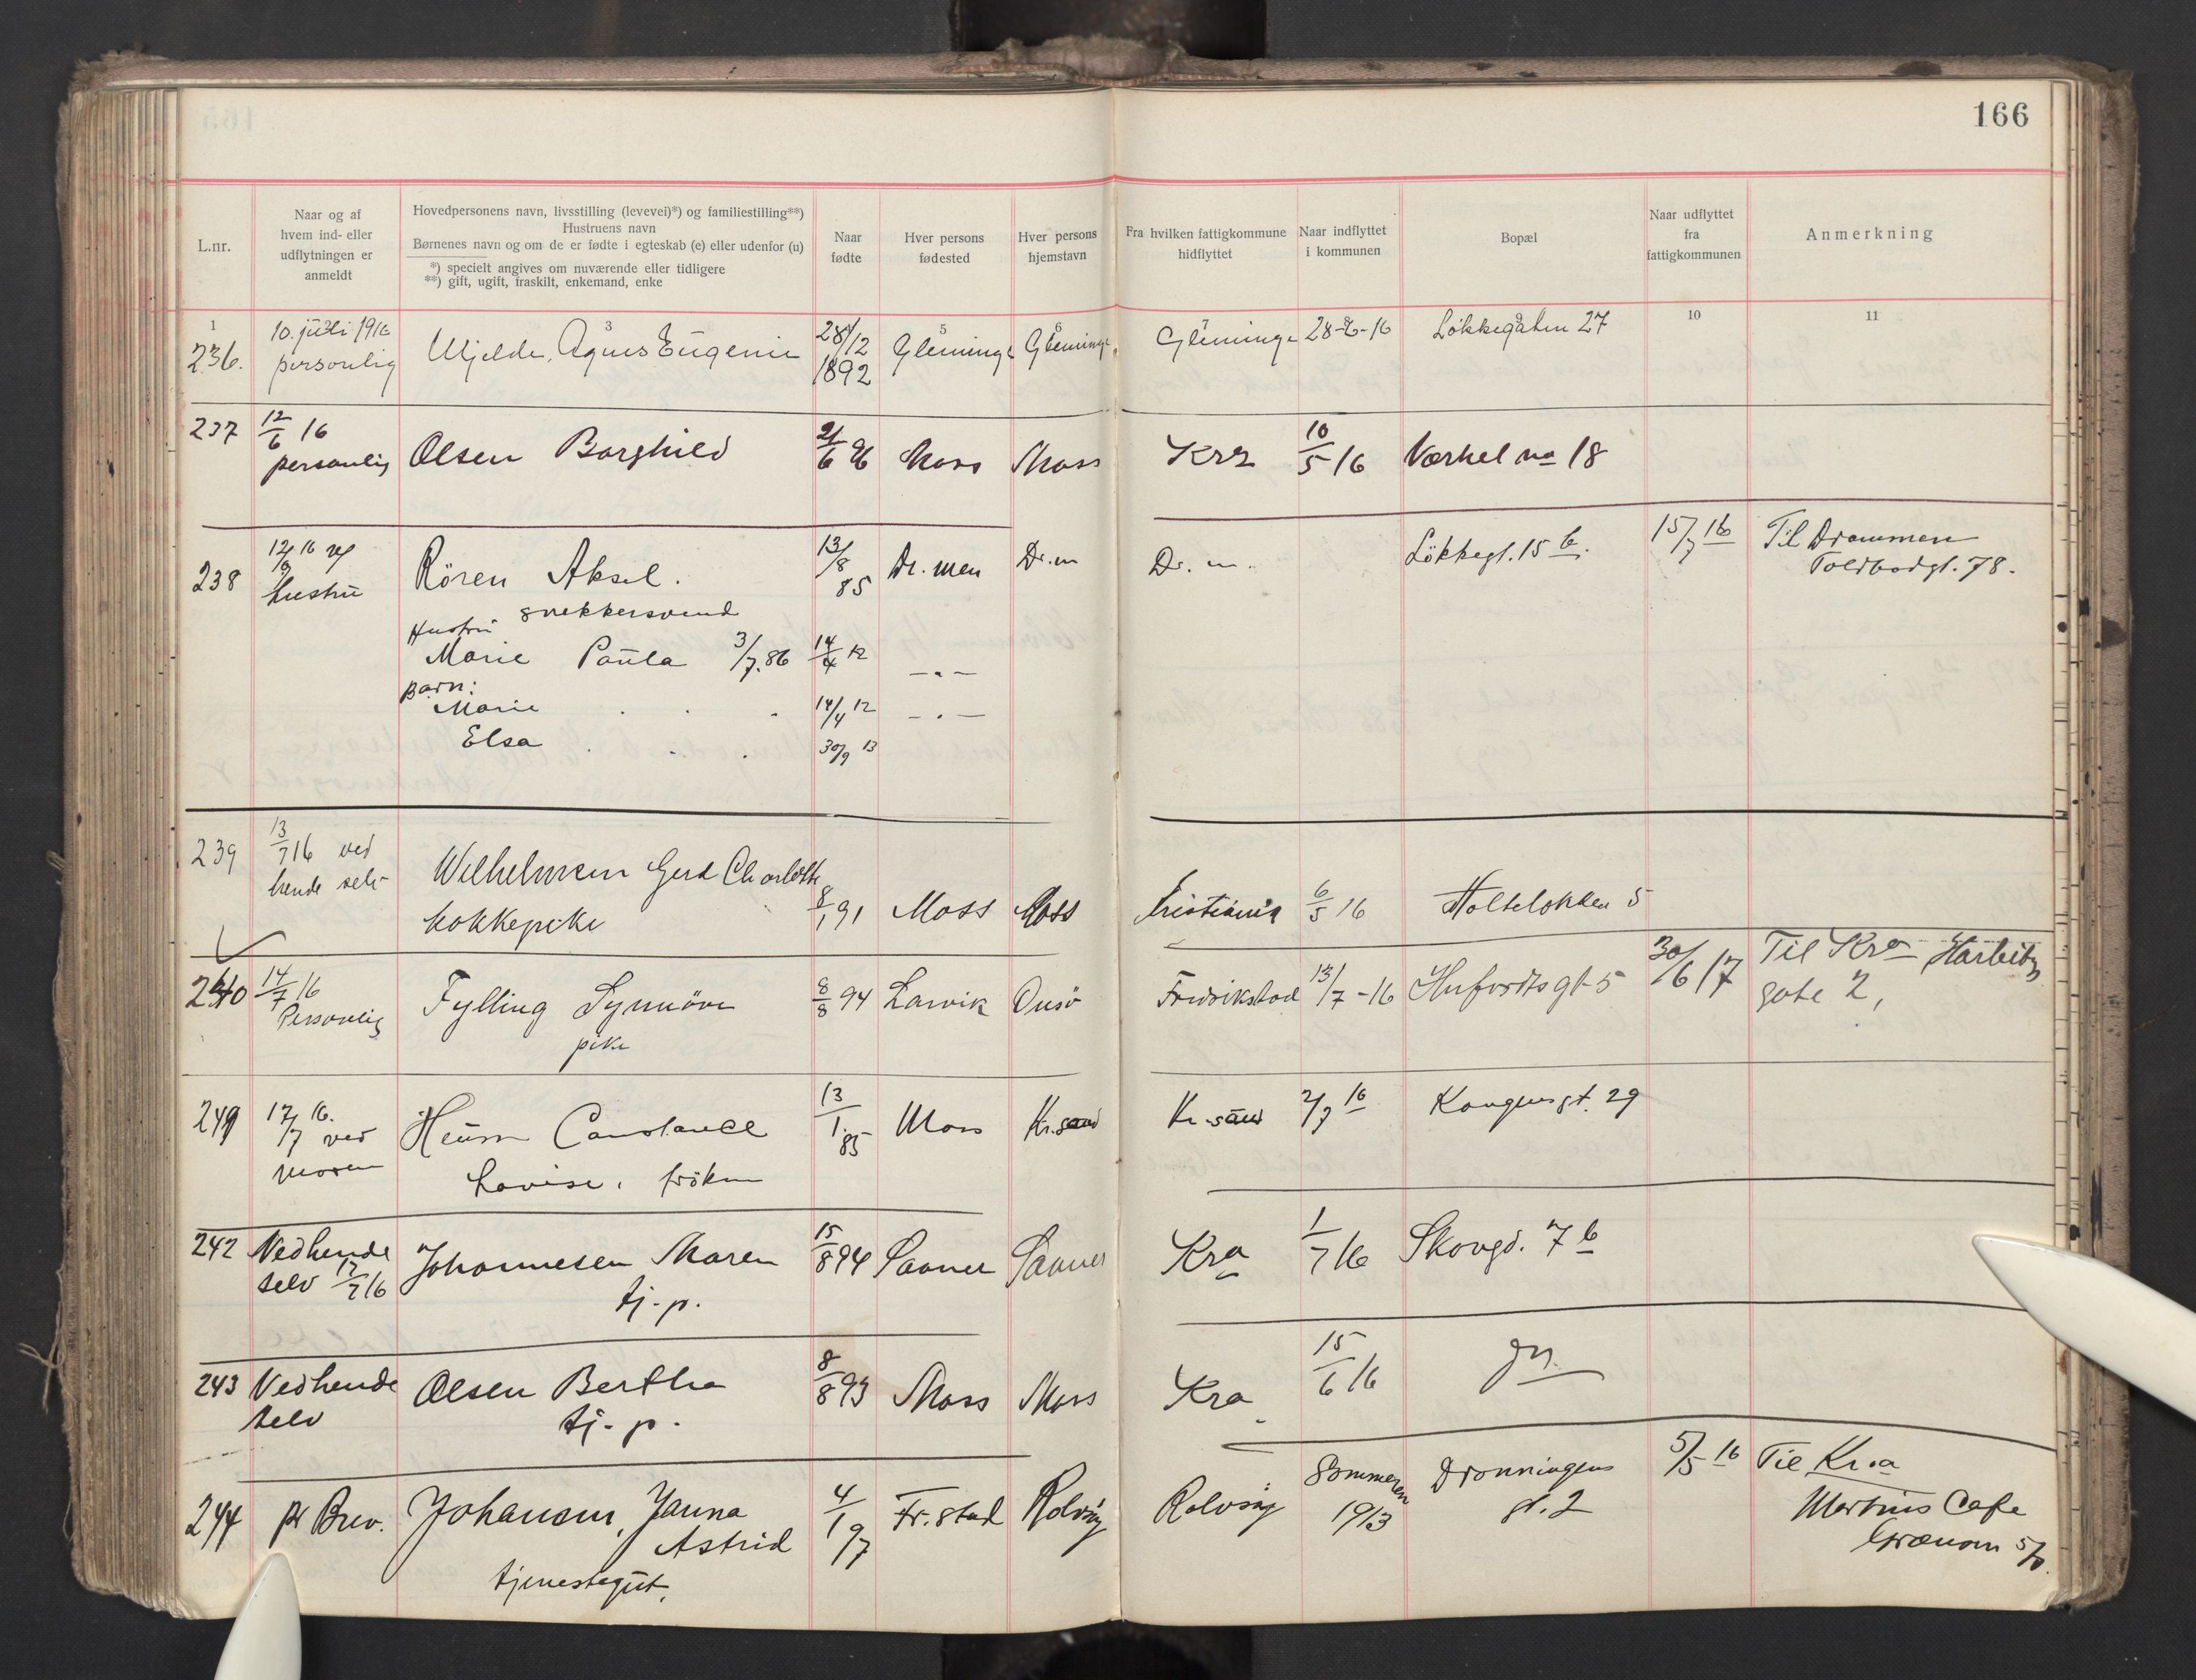 166
L.nr.
Naar og af
hvem ind- eller
udflytningen er
anmeldt
Hovedpersonens navn, livsstilling (levevei)*) og familiestilling**)
Hustruens navn
Børnenes navn og om de er fødte i egteskab (e) eller udenfor (u)
*) specielt angives om nuværende eller tidligere
**) gift, ugift, fraskilt, enkemand, enke
Naar
fødte
Hver persons
fødested
Hver persons
hjemstavn
Fra hvilken fattigkommune
hidflyttet
Naar indflyttet
i kommunen
Bopæl
Naar udflyttet
fra
fattigkommunen
Anmerkning
1 3 5 6 7 10 11
236. 10. juli 1916 Agnes Eugenie 28/12 Glemminge Glemminge Glemminge 28-6-16 Løkkegaten 27
personlig 1892
237 12/6 16 Olsen Borghild 21/6 96 Moss Moss Kra 10/5 16 Værket no 18
personlig
238 12/7 16 v/ Rören Aksel. 13/8 85 Dr.men Dr.m Dr. m. Løkkegt. 15 b. 15/7 16 Til Drammen
hustru snekkersvend Toldbodgt. 78.
Hustru
Marie Paula 3/7.86 14/4 12 — " —
Barn:
Marie 14/4 12 — " —
Elsa 30/9 13
239 13/7 16 ved Wilhelmsen Gerd Charlotte
hende selv kokkepike 8/1 91 Moss Moss Kristiania 6/5 16 Holteløkken 5
240 14/7 16 Fylling Synnöve 8/8 94 Larvik Onsö Fredrikstad 13/7-16 gt 5 30/6 17 Til Kra
Personlig pike gate 2,
241 17/7 16. Constance 13/1 85 Moss Kr.sand Kr.sand 2/7 16 Kongensgt. 29
ved
moren Lovise, fröken
242 Ved hende Johannesen Maren 15/8 94 Saaner Saaner Kra 1/7 16 Skovgd. 7 b
selv 17/7 16 tj. p.
243 Ved hende Olsen Bertha 8/8 93 Moss Moss Kra 15/6 16
selv tj. p.
244 pr Brev. Johansen, Janna 4/1 97 Fr.stad Rolvsöy Rolvsöy Sommeren Dronningens 5/5 16 Til Kr.a
Astrid 1913 gt. 2 Martins Cafe
tjenestegut.